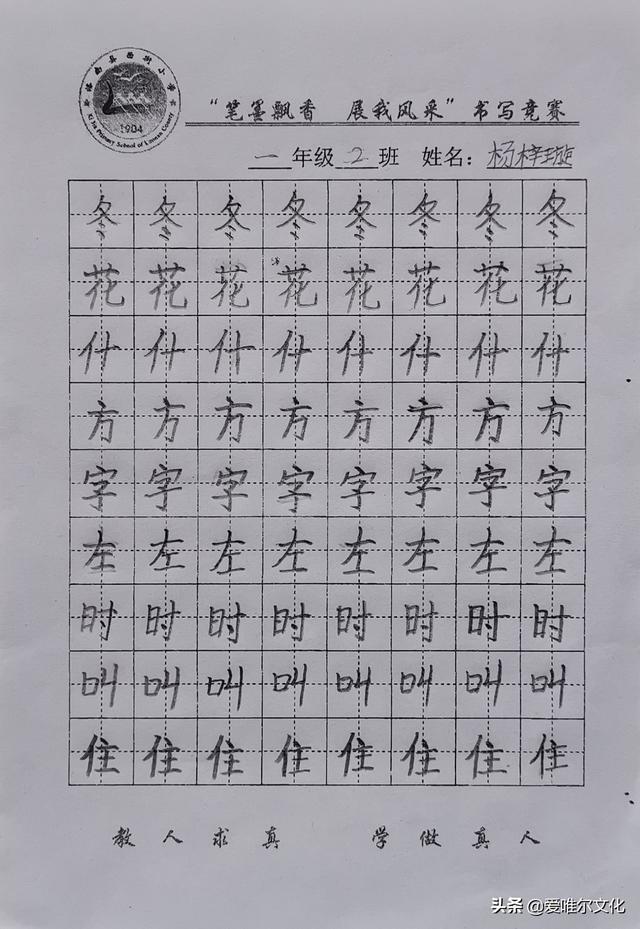 临南县西街小学
Xi Jie Primary School of Linnan County
1904
“笔墨飘香 展我风采”书写竞赛
一年级2班 姓名：杨梓璇
冬冬冬冬冬冬冬冬
花花花花花花花花
什什什什什什什什
方方方方方方方方
字字字字字字字字
左左左左左左左左
时时时时时时时时
叫叫叫叫叫叫叫叫
住住住住住住住住
教人求真 学做真人
头条@爱唯尔文化